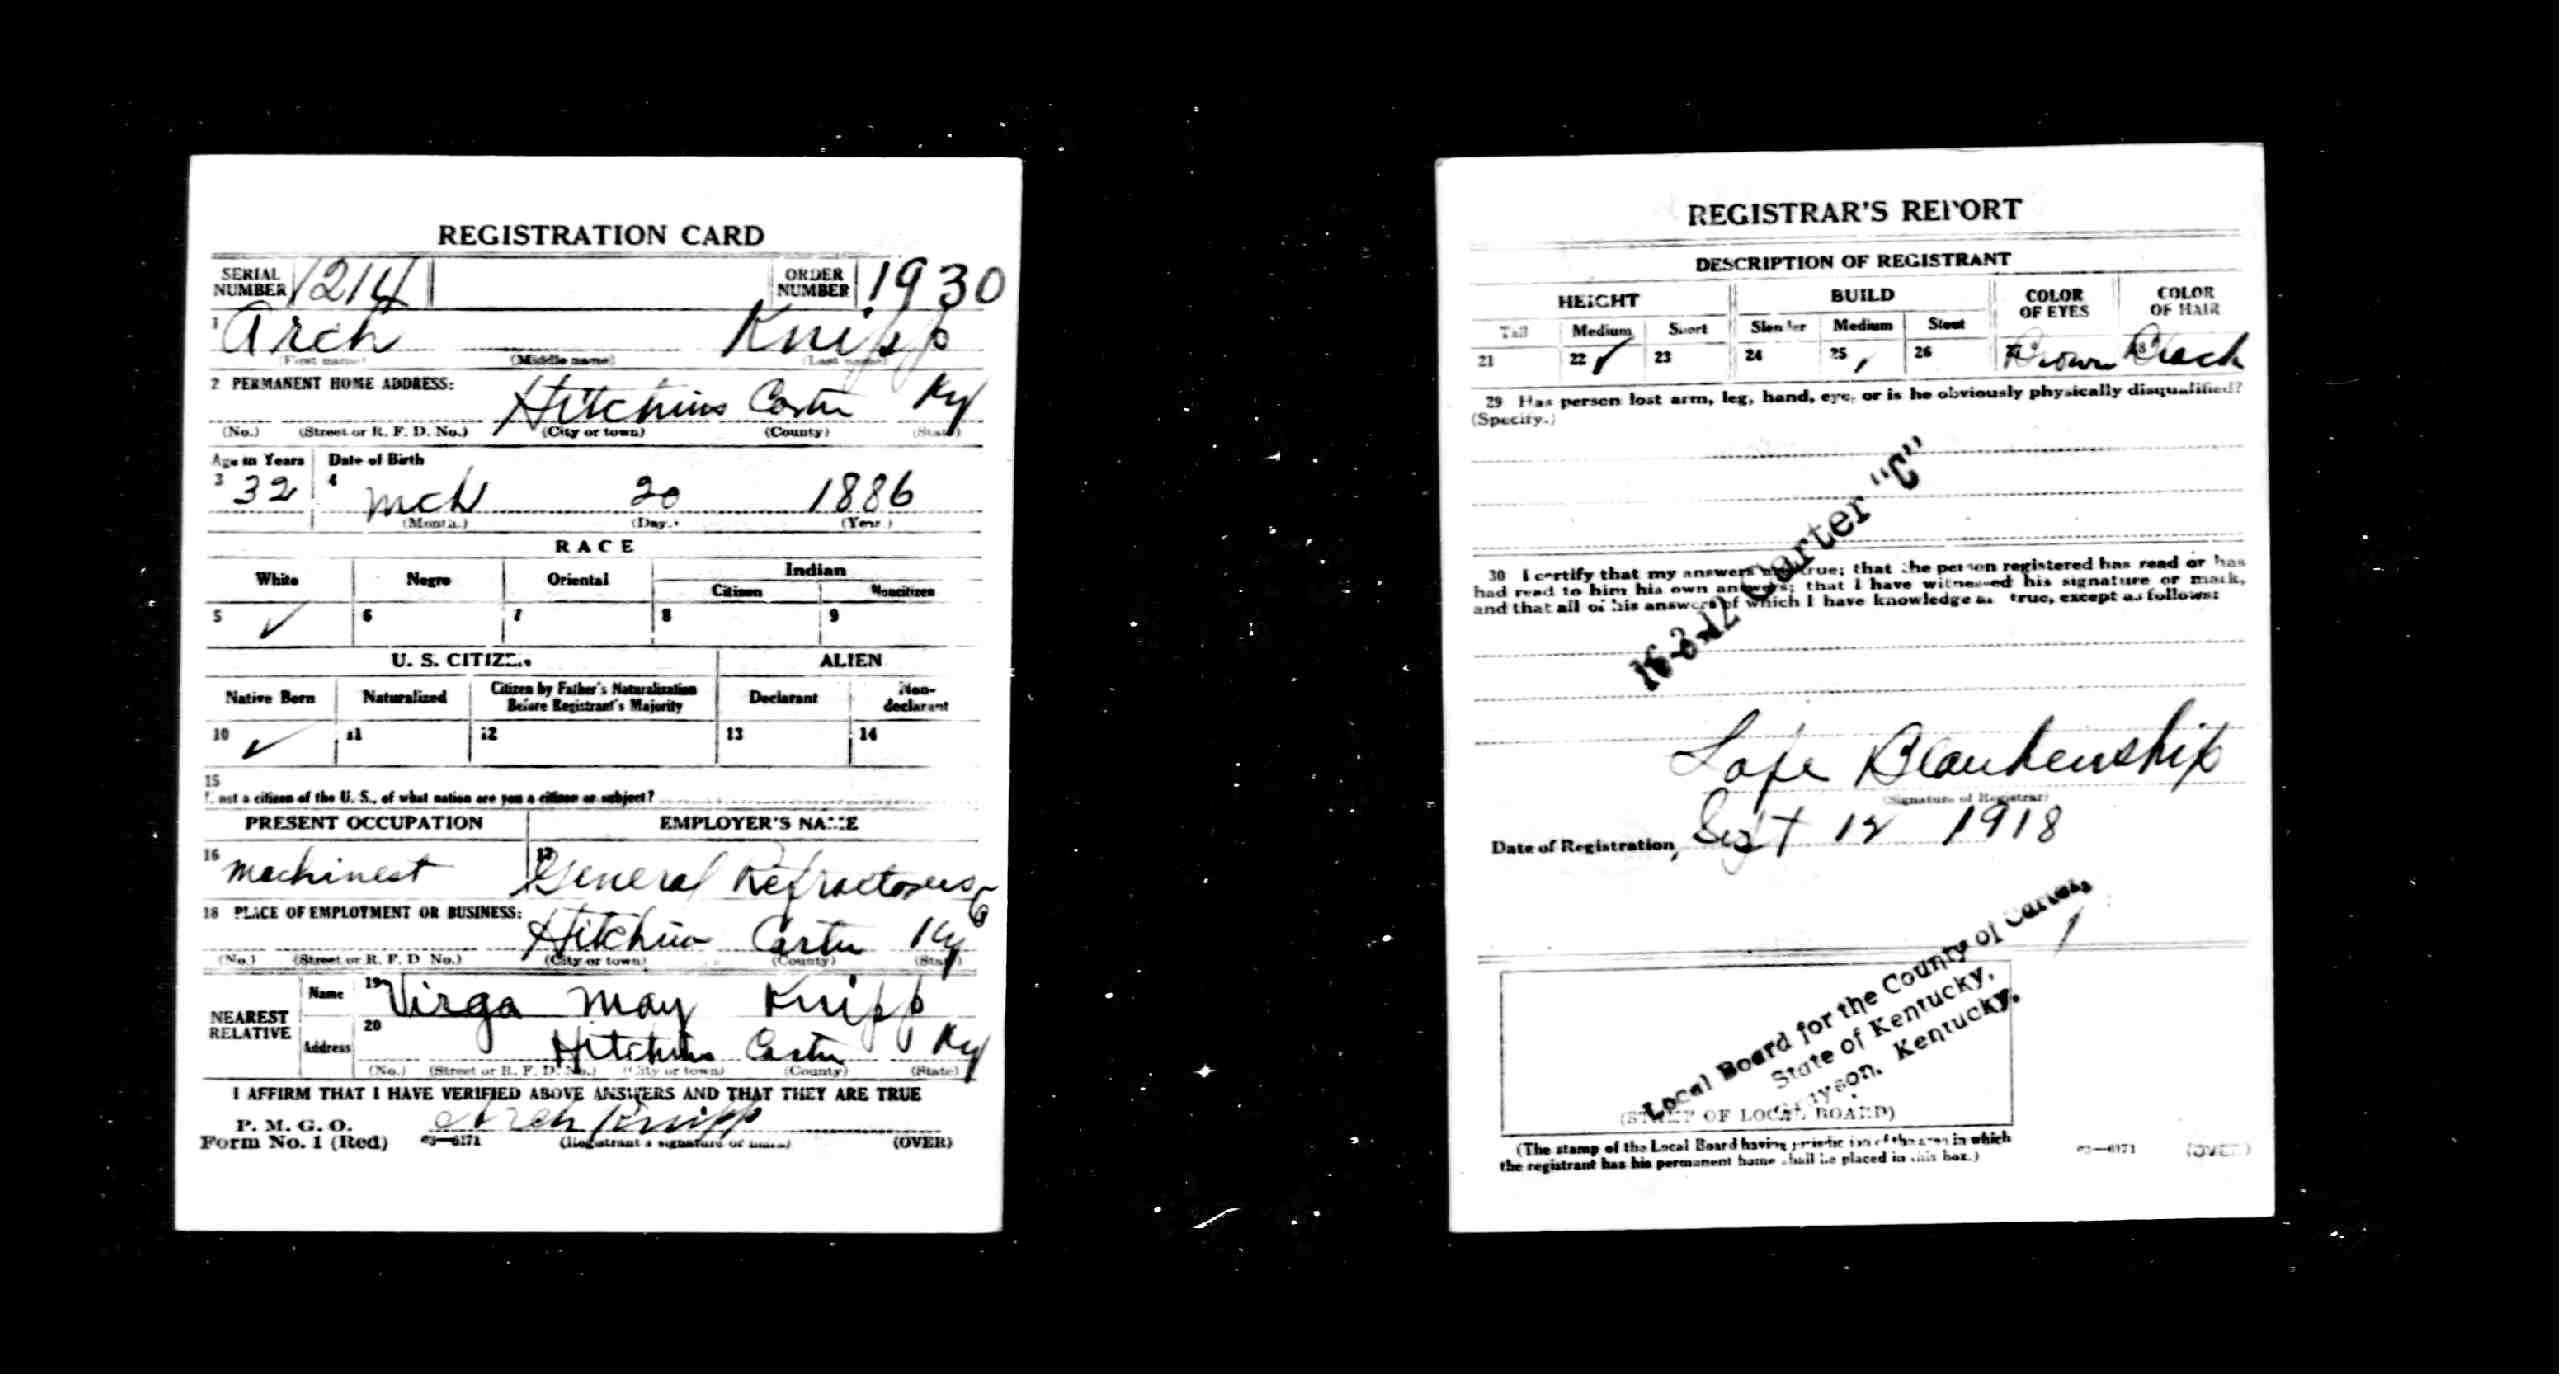 REGISTRATION CARD
SERIAL NUMBER 1214 ORDER NUMBER 1930
1 Arch Knipp
(First name) (Middle name) (Last name)
2 PERMANENT HOME ADDRESS:
Hitchins Carter Ky
(No.) (Street or R. F. D. No.) (City or town) (County) (State)
Age in Years Date of Birth
3 32 4 Mch 20 1886
(Month.) (Day.) (Year.)
RACE
White Negro Oriental Indian
Citizen Noncitizen
5 ✓ 6 7 8 9
U. S. CITIZEN ALIEN
Native Born Naturalized Citizen by Father's Naturalization Before Registrant's Majority Declarant Non-declarant
10 ✓ 11 12 13 14
15
If not a citizen of the U. S., of what nation are you a citizen or subject?
PRESENT OCCUPATION EMPLOYER'S NAME
16 Machinest 17 General Refractories Co
18 PLACE OF EMPLOYMENT OR BUSINESS:
Hitchins Carter Ky
(No.) (Street or R. F. D. No.) (City or town) (County) (State)
NEAREST RELATIVE
Name 19 Virga May Knipp
Address 20 Hitchins Carter Ky
(No.) (Street or R. F. D. No.) (City or town) (County) (State)
I AFFIRM THAT I HAVE VERIFIED ABOVE ANSWERS AND THAT THEY ARE TRUE
P. M. G. O.
Form No. 1 (Red) 03—6171 Arch Knipp
(Registrant's signature or mark) (OVER)
REGISTRAR'S REPORT
DESCRIPTION OF REGISTRANT
HEIGHT BUILD COLOR OF EYES COLOR OF HAIR
Tall Medium Short Slender Medium Stout
21 22 ✓ 23 24 25 ✓ 26 27 Brown 28 Black
29 Has person lost arm, leg, hand, eye, or is he obviously physically disqualified?
(Specify.)
16-3-12 Carter "C"
30 I certify that my answers are true; that the person registered has read or has
had read to him his own answers; that I have witnessed his signature or mark,
and that all of his answers of which I have knowledge are true, except as follows:
Lafe Blankenship
(Signature of Registrar)
Date of Registration, Sept 12 1918
Local Board for the County of Carter,
State of Kentucky,
Grayson, Kentucky.
(STAMP OF LOCAL BOARD)
(The stamp of the Local Board having jurisdiction of the area in which
the registrant has his permanent home shall be placed in this box.)
03—6171 (OVER)